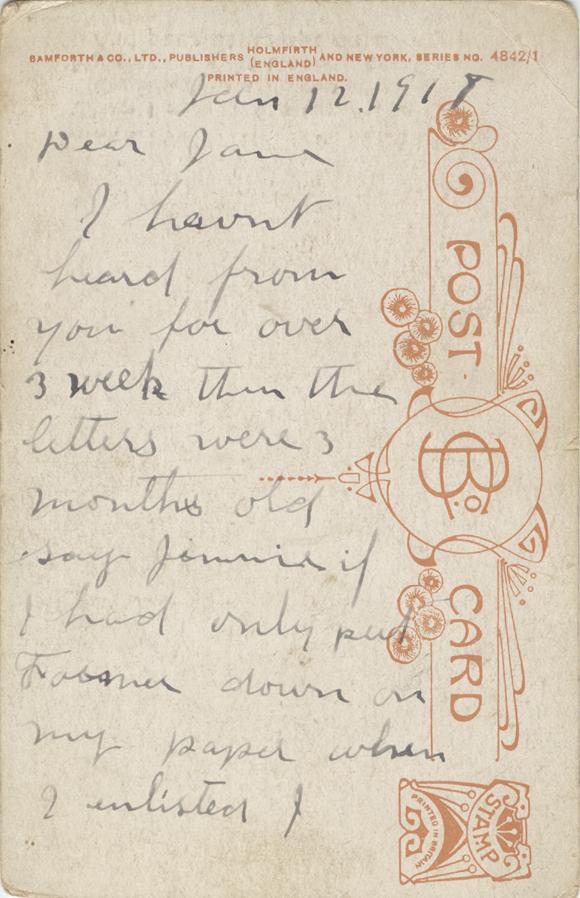 BAMFORTH & CO., LTD., PUBLISHERS HOLMFIRTH (ENGLAND) AND NEW YORK, SERIES NO. 4842/1
PRINTED IN ENGLAND.
Jan 12.1918
Dear Jane
I havnt
heard from
you for over
3 week then the
letters were 3
months old
say Jennie if
I had only put
Farmer down on
my paper when
I enlisted I
POST CARD
B Co
STAMP
PRINTED IN BRITAIN